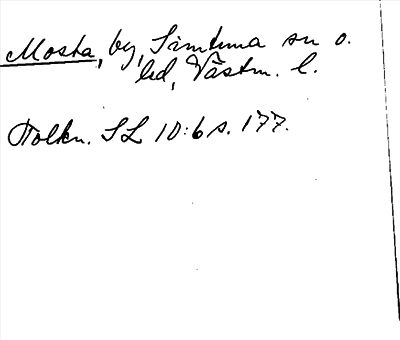 Mosta, by, Simtuna sn o.
hd, Västm. l.
Tolkn. SL 10:6 s. 177.